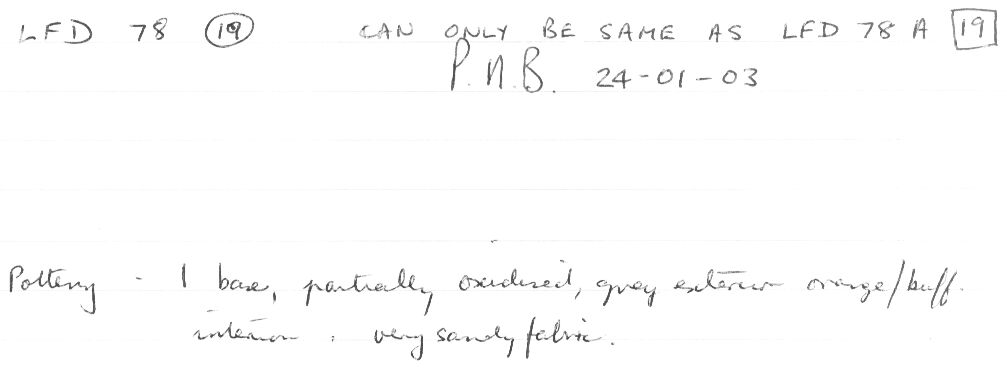 LFD 78 19 CAN ONLY BE SAME AS LFD 78 A 19
P.N.B. 24-01-03
Pottery - 1 base, partially oxidized, grey exterior orange/buff.
interior. very sandy fabric.